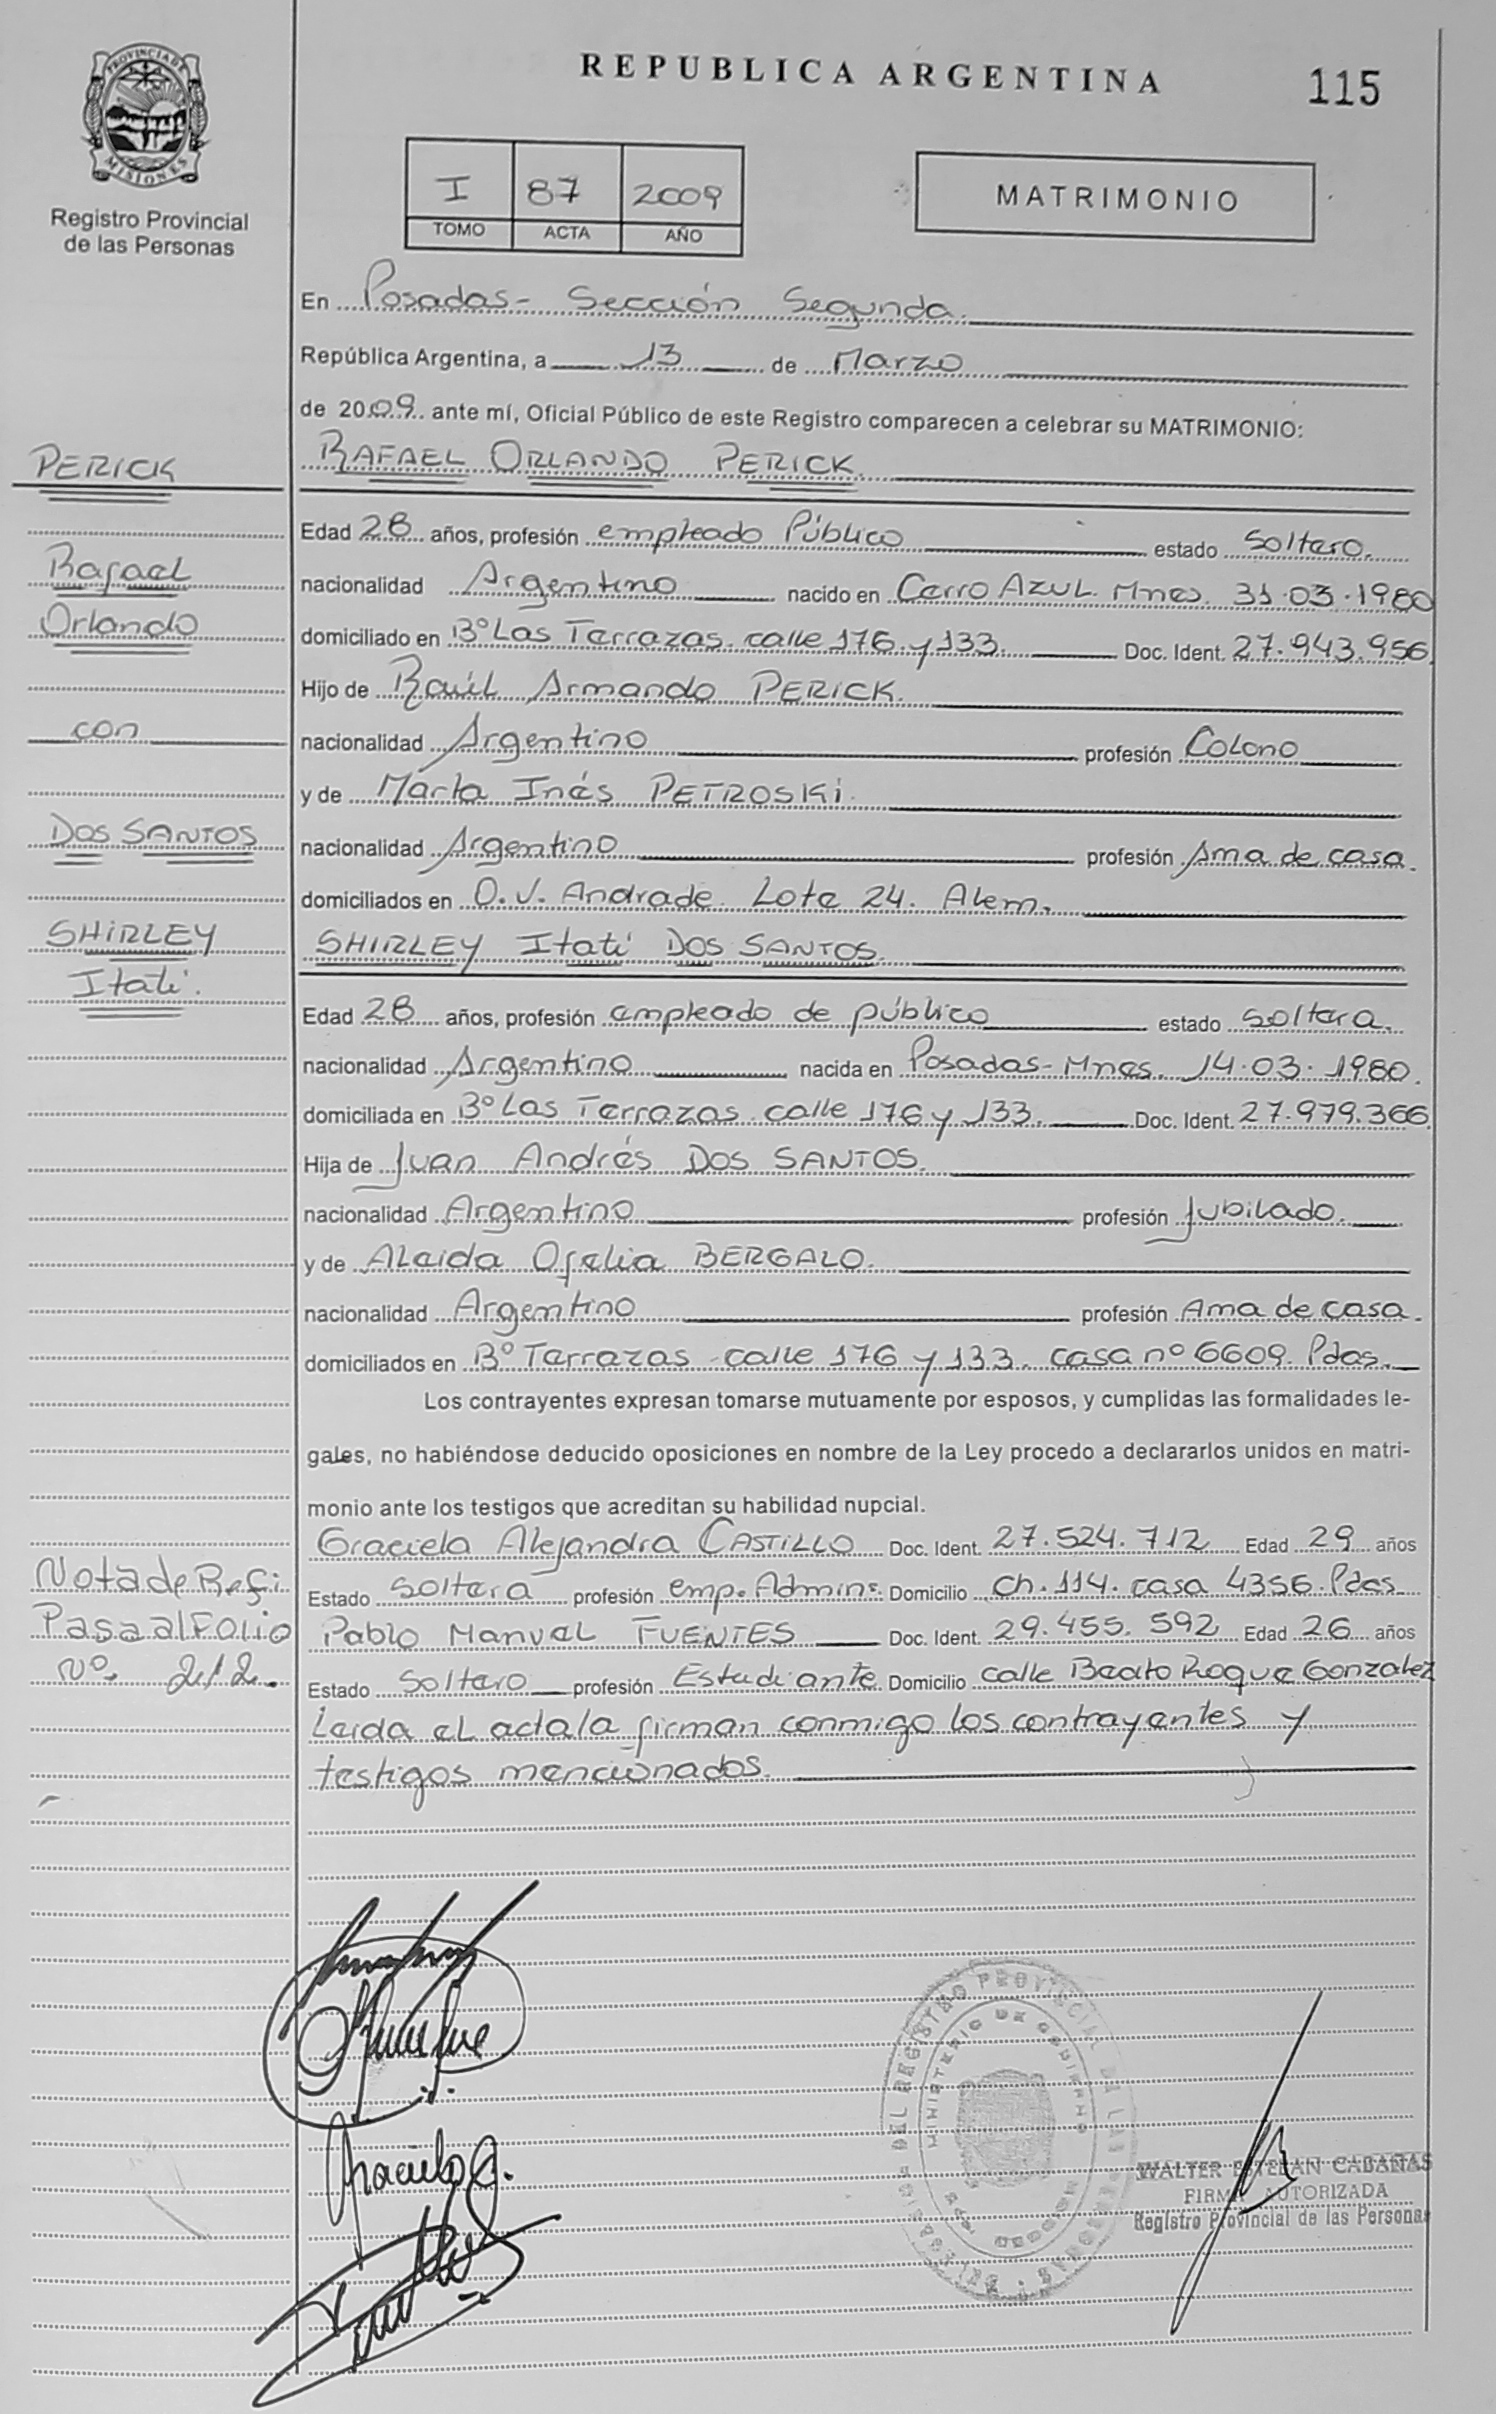 REPUBLICA ARGENTINA
115
PROVINCIA DE
MISIONES
Registro Provincial
de las Personas
I 87 2009
TOMO ACTA AÑO
MATRIMONIO
En Posadas- Sección Segunda.
República Argentina, a 13 de Marzo
de 2009. ante mí, Oficial Público de este Registro comparecen a celebrar su MATRIMONIO:
PERICK
RAFAEL ORLANDO PERICK.
Edad 28 años, profesión empleado Público estado Soltero.
Rafael
nacionalidad Argentino nacido en Cerro AZUL. Mnes. 31.03.1980
Orlando
domiciliado en Bº Las Terrazas. calle 176. y 133. Doc. Ident. 27.943.956.
Hijo de Raúl Armando PERICK.
con
nacionalidad Argentino profesión Colono
y de Marta Inés PETROSKi.
DOS SANTOS
nacionalidad Argentino profesión Ama de casa.
domiciliados en O.V. Andrade. Lote 24. Alem.
SHIRLEY
SHIRLEY Itatí DOS SANTOS.
Itatí.
Edad 28 años, profesión empleado de público estado soltera.
nacionalidad Argentino nacida en Posadas-Mnes. 14.03.1980.
domiciliada en Bº Las Terrazas. calle 176 y 133. Doc. Ident. 27.979.366
Hija de Juan Andrés DOS SANTOS.
nacionalidad Argentino profesión Jubilado.
y de Aleida Ofelia BERGALO.
nacionalidad Argentino profesión Ama de casa.
domiciliados en Bº Terrazas - calle 176 y 133. casa nº 6609. Pdas.
Los contrayentes expresan tomarse mutuamente por esposos, y cumplidas las formalidades le-
gales, no habiéndose deducido oposiciones en nombre de la Ley procedo a declararlos unidos en matri-
monio ante los testigos que acreditan su habilidad nupcial.
Graciela Alejandra CASTILLO Doc. Ident. 27.524.712 Edad 29 años
Nota de Refi
Estado Soltera profesión emp. Admins. Domicilio Ch. 114. casa 4356. Pdas
Pasa al Folio
Pablo Manuel FUENTES Doc. Ident. 29.455.592 Edad 26 años
Nº. 212.
Estado Soltero profesión Estudiante Domicilio calle Beato Roque Gonzalez
Leida el acta la firman conmigo los contrayentes y
testigos mencionados.
DEL REGISTRO PROVINCIAL DE LAS PERSONAS
MINISTERIO DE GOBIERNO
WALTER ESTEBAN CABAÑAS
FIRMA AUTORIZADA
Registro Provincial de las Personas